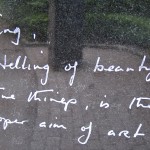 ing,
telling of beauty
ue things, is the
oper aim of art